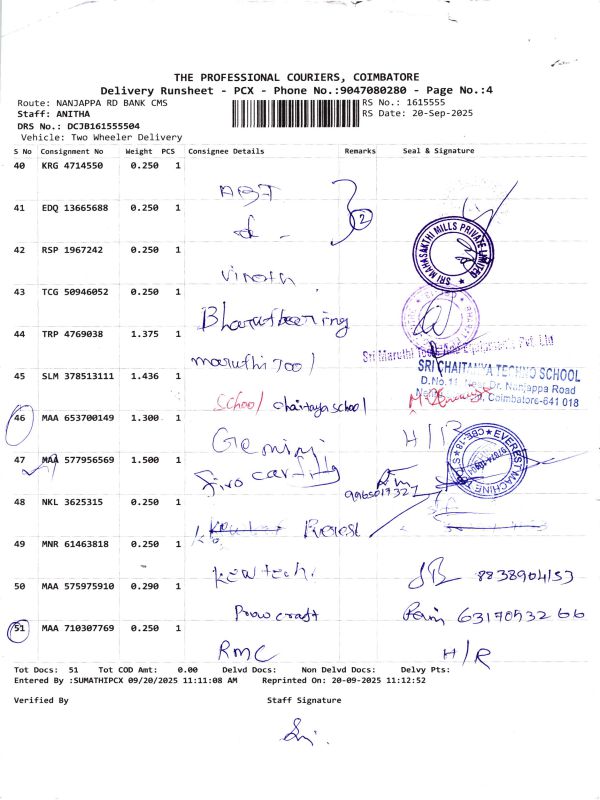 THE PROFESSIONAL COURIERS, COIMBATORE
Delivery Runsheet - PCX - Phone No.:9047080280 - Page No.:4
Route: NANJAPPA RD BANK CMS
RS No.: 1615555
Staff: ANITHA
RS Date: 20-Sep-2025
DRS No.: DCJB161555504
Vehicle: Two Wheeler Delivery
S No Consignment No Weight PCS Consignee Details Remarks Seal & Signature
40 KRG 4714550 0.250 1
ABT
2
41 EDQ 13665688 0.250 1
SRI MAHASAKTHI MILLS PRIVATE LIMITED
42 RSP 1967242 0.250 1
Viroth
43 TCG 50946052 0.250 1
Bharat bearing
44 TRP 4769038 1.375 1
maruthi Tool
Sri Maruthi Tools And Equipments Pvt. Ltd
45 SLM 378513111 1.436 1
SRI CHAITANYA TECHNO SCHOOL
D.No.11 Dr. Nanjappa Road
Coimbatore-641 018
School chaitaya school
46 MAA 653700149 1.300 1
Gemini H/R
47 MAA 577956569 1.500 1
EVEREST MACHINE CBE-18
9965017327
48 NKL 3625315 0.250 1
49 MNR 61463818 0.250 1
Kew tech. 8838904153
50 MAA 575975910 0.290 1
Prowcraft 6317053266
51 MAA 710307769 0.250 1
RMC H/R
Tot Docs: 51 Tot COD Amt: 0.00 Delvd Docs: Non Delvd Docs: Delvy Pts:
Entered By :SUMATHIPCX 09/20/2025 11:11:08 AM Reprinted On: 20-09-2025 11:12:52
Verified By Staff Signature